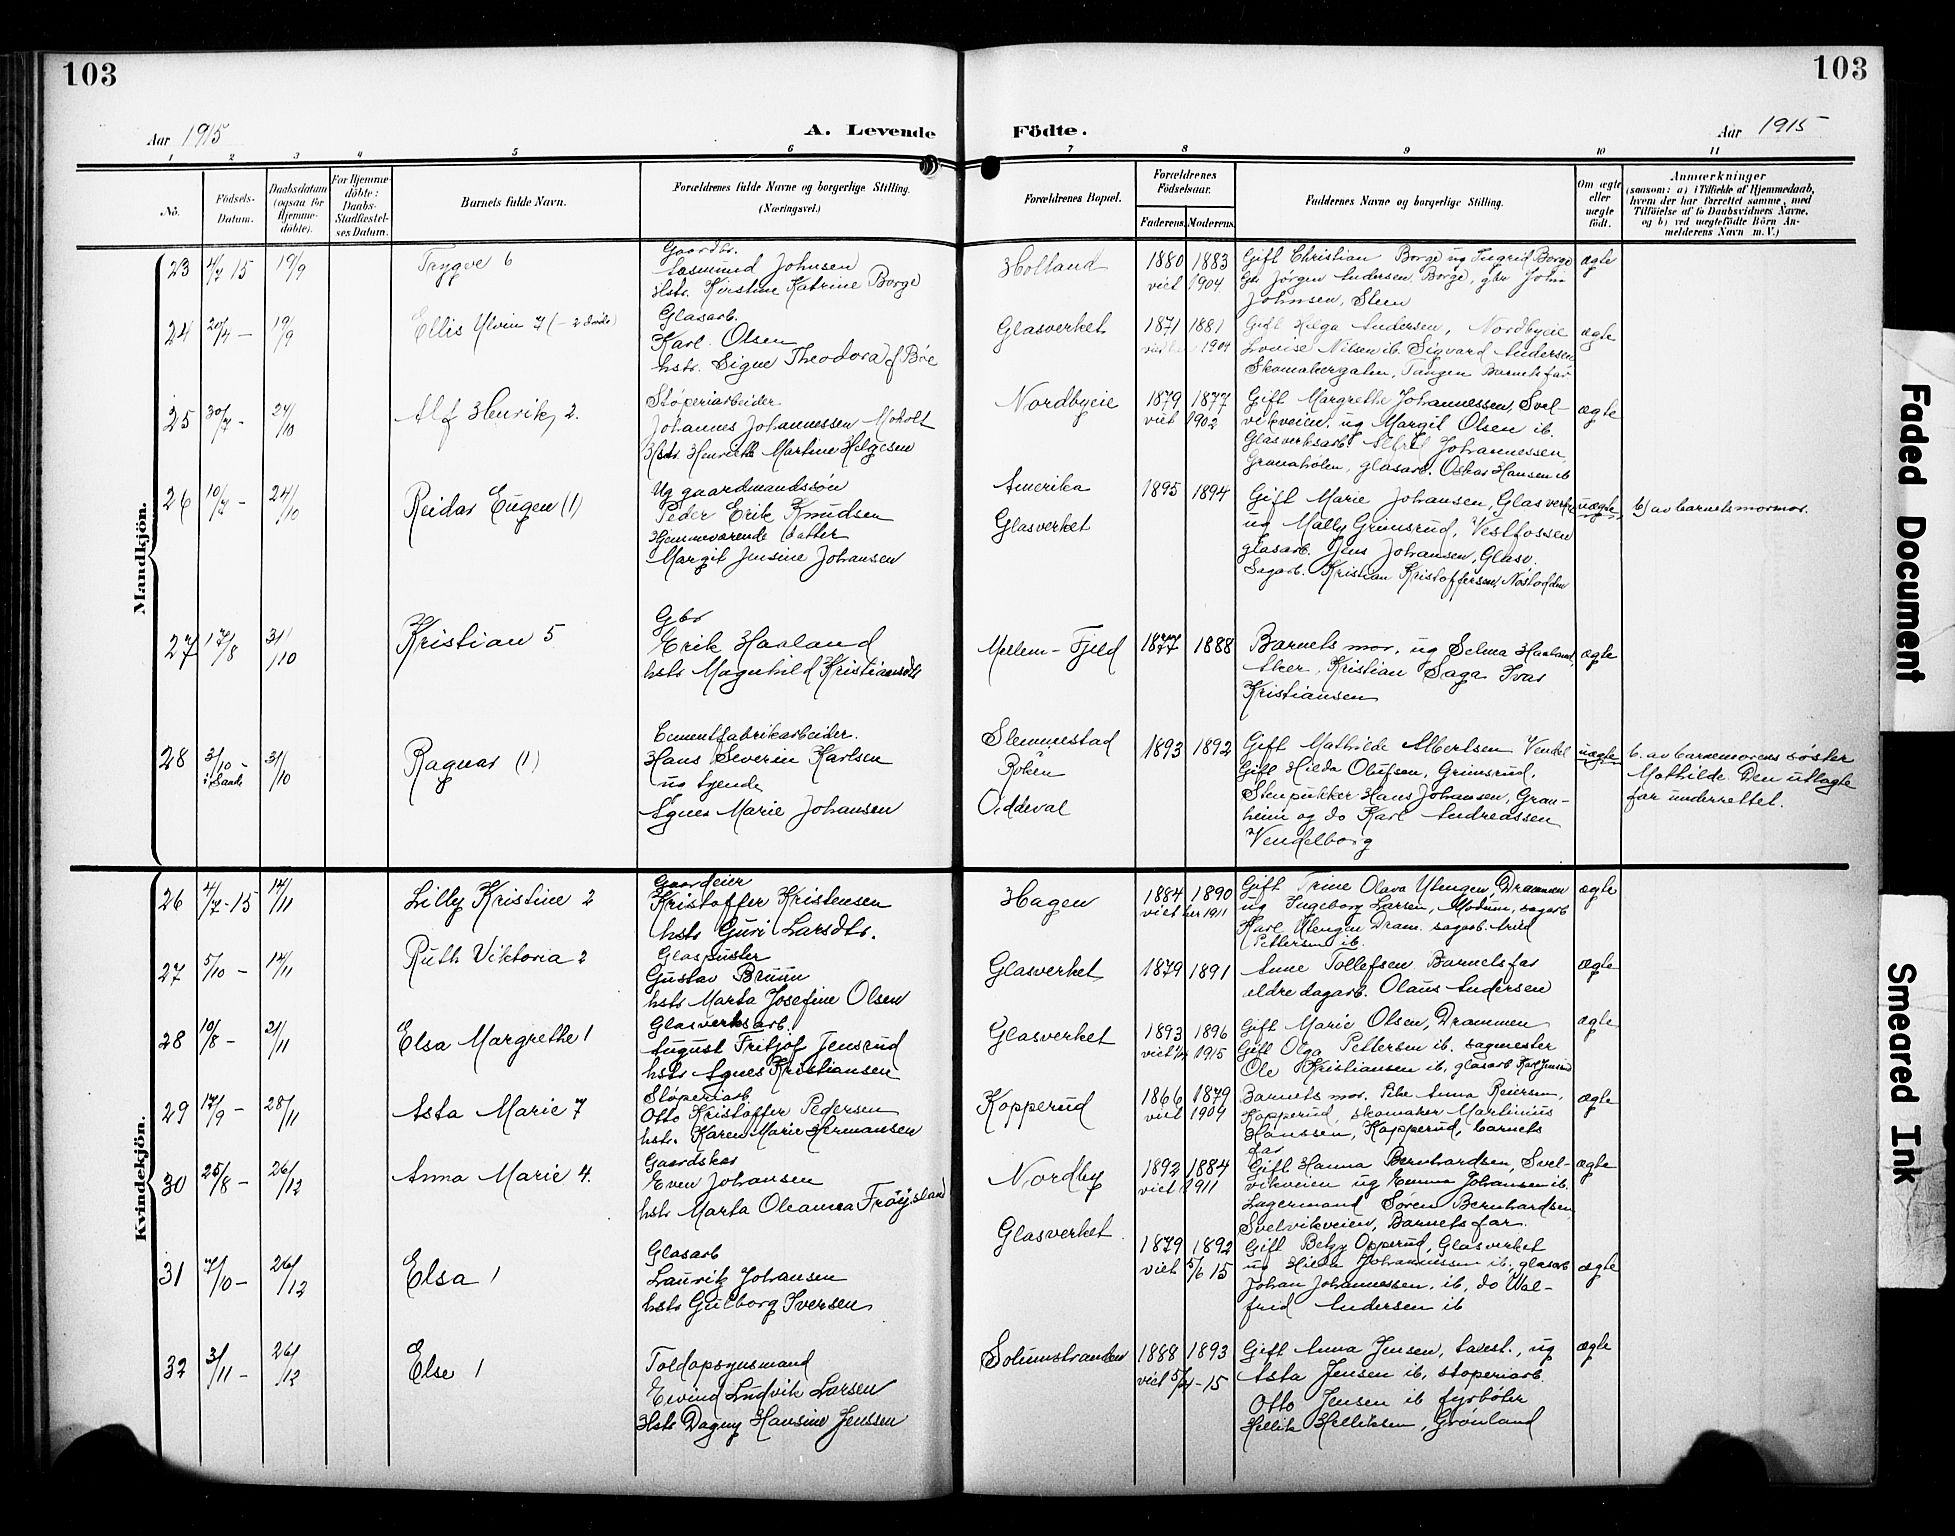 103
103
Aar 1915
A. Levende
Födte.
Aar 1915
1 2 3 4 5 6 7 8 9 10 11
No.
Födsels-Datum.
Daabsdatum (ogsaa for Hjemme-döbte).
For Hjemme-döbte: Daabs-Stadfæstel-ses Datum.
Barnets fulde Navn.
Forældrenes fulde Navne og borgerlige Stilling. (Næringsvei.)
Forældrenes Bopæl.
Forældrenes Födselsaar.
Faderens. Moderens.
Faddernes Navne og borgerlige Stilling.
Om ægte eller uægte født.
Anmærkninger
(saasom: a) i Tilfælde af Hjemmedaab,
hvem der har forrettet samme, med
Tilföielse af to Daabsvidners Navne,
og b) ved uægtefödte Börn An-
melderens Navn m. V.)
Mandkjön.
23 4/7 15 19/9 Trygve 6
Gaardbr.
Aasmund Johnsen
Hstr. Kirstine Katrine Borge
Holtand
1880 1883
viet 1904
Gift Christian Borge ug Ingrid Borge
Gbr Jørgen Andersen Borge, gbr John
Johnsen, Steen
ægte
24 20/4 — 19/9 Ellis Ulvin 7 (- 2 døde)
Glasarb.
Karl Olsen
hstr. Signe Theodora f Böe
Glasverket
1871 1881
1904
Gift Helga Andersen, Nordbyeie
Lovise Nilsen ib. Sigvard Andersen
Skomakergaten, Tangen Barnets far
ægte
25 30/7 - 24/10 Alf Henrik, 2.
Støperiarbeider
Johannes Johannessen Moholt
Hstr. Henriette Martine Helgesen
Nordbyeie
1879 1877
viet 1902
Gift Margrethe Johannessen, Svel-
vikveien, ug Margit Olsen ib.
Glasverksarb. Johannessen,
Granaholen, glasarb. Oskar Hansen ib
ægte
26 10/7 - 24/10 Reidar Eugen (1)
Ug gaardmandssøn
Peder Erik Knudsen
Hjemmeværende datter
Margit Jensine Johansen
Amerika
Glasverket
1895 1894
Gift Marie Johansen, Glasverket
ug Mally Grimsrud, Vestfossen
glasarb. Jens Johansen, Glasv.
Sagarb. Kristian Kristoffersen, Notodden
uægte
b) av barnets mormor.
27 17/8 31/10 Kristian 5
Gbr
Erik Haaland
hstr Magnhild Kristiansdtr
Mellem-Fjeld
1877 1888
Barnets mor, ug Selma Haaland,
Aker, Kristian Saga Ivar
Kristiansen
ægte
28 3/10 - i Sande 31/10 Ragnar (1)
Cementfabrikarbeider.
Hans Severin Karlsen
ug tjende
Agnes Marie Johansen
Slemmestad
Røken
Oddeval
1893 1892
Gift Mathilde Albertsen Vendel
Gift Hilda Olufsen, Grimsrud,
Stenpukker Hans Johansen, Gran-
heim og do Karl Andreassen
Vendelborg
uægte
b. av barnemorens søster
Mathilde. Den utlagte
far underrettet.
Kvindekjön.
26 4/7-15 14/11 Lilly Kristine 2
Gaardeier
Kristoffer Kristensen
hstr Guri Larsdtr.
Hagen
1884 1890
viet her 1911
Gift Trine Olava Utengen, Drammen
ug Ingeborg Larsen, Modum, sagarb
Karl Utengen Dram. sagarb. Arvid
Pettersen ib.
ægte
27 5/10 - 14/11 Ruth Viktoria 2
Glaspuster
Gustav Bruun
hstr Marta Josefine Olsen
Glasverket
1879 1891
Anne Tollefsen Barnets far
eldre dagarb. Olaus Andersen
ægte
28 10/8 - 21/11 Elsa Margrethe 1
Glasverksarb.
August Fritjof Jensrud
hstr Agnes Kristiansen
Glasverket
1893 1896
viet 1915
Gift Marie Olsen, Drammen
Gift Olga Pettersen ib. sagmester
Ole Kristiansen ib, glasarb Karl Jensrud
ægte
29 17/9 - 28/11 Asta Marie 7
Støperiarb.
Otto Kristoffer Pedersen
hstr. Karen Marie Hermansen
Kopperud
1866 1879
viet 1904
Barnets mor. Pike Anna Reiersen,
Kopperud, skomaker Martinius
Hanssen, Kopperud, barnets
far
ægte
30 25/8 - 26/12 Anna Marie 4.
Gaardskar
Even Johansen
hstr Marta Oleanna Frøysland
Nordby
1892 1884
viet 1911
Gift Hanna Bernhardsen, Svel-
vikveien ug Emma Johansen ib.
Lagermand Søren Bernhardsen,
Svelvikveien, Barnets far.
ægte
31 7/10 - 26/12 Elsa 1
Glasarb
Lauritz Johansen
hstr Gulborg Iversen
Glasverket
1879 1892
viet 5/6 15
Gift Betzy Opperud, Glasverket
ug Hilda Johannessen ib, glasarb
Johan Johannessen, ib, do Wal-
frid Andersen ib
ægte
32 3/11 - 26/12 Else 1
Toldopsynsmand
Eivind Ludvik Larsen
Hstr Dagny Hansine Jenssen
Solumstranden
1888 1893
viet 5/4-15
Gift Anna Jensen, ug
Asta Jensen ib, støperiarb.
Otto Jensen ib fyrbøter
Hellik Helliksen, Grønland
ægte
Faded Document
Smeared Ink